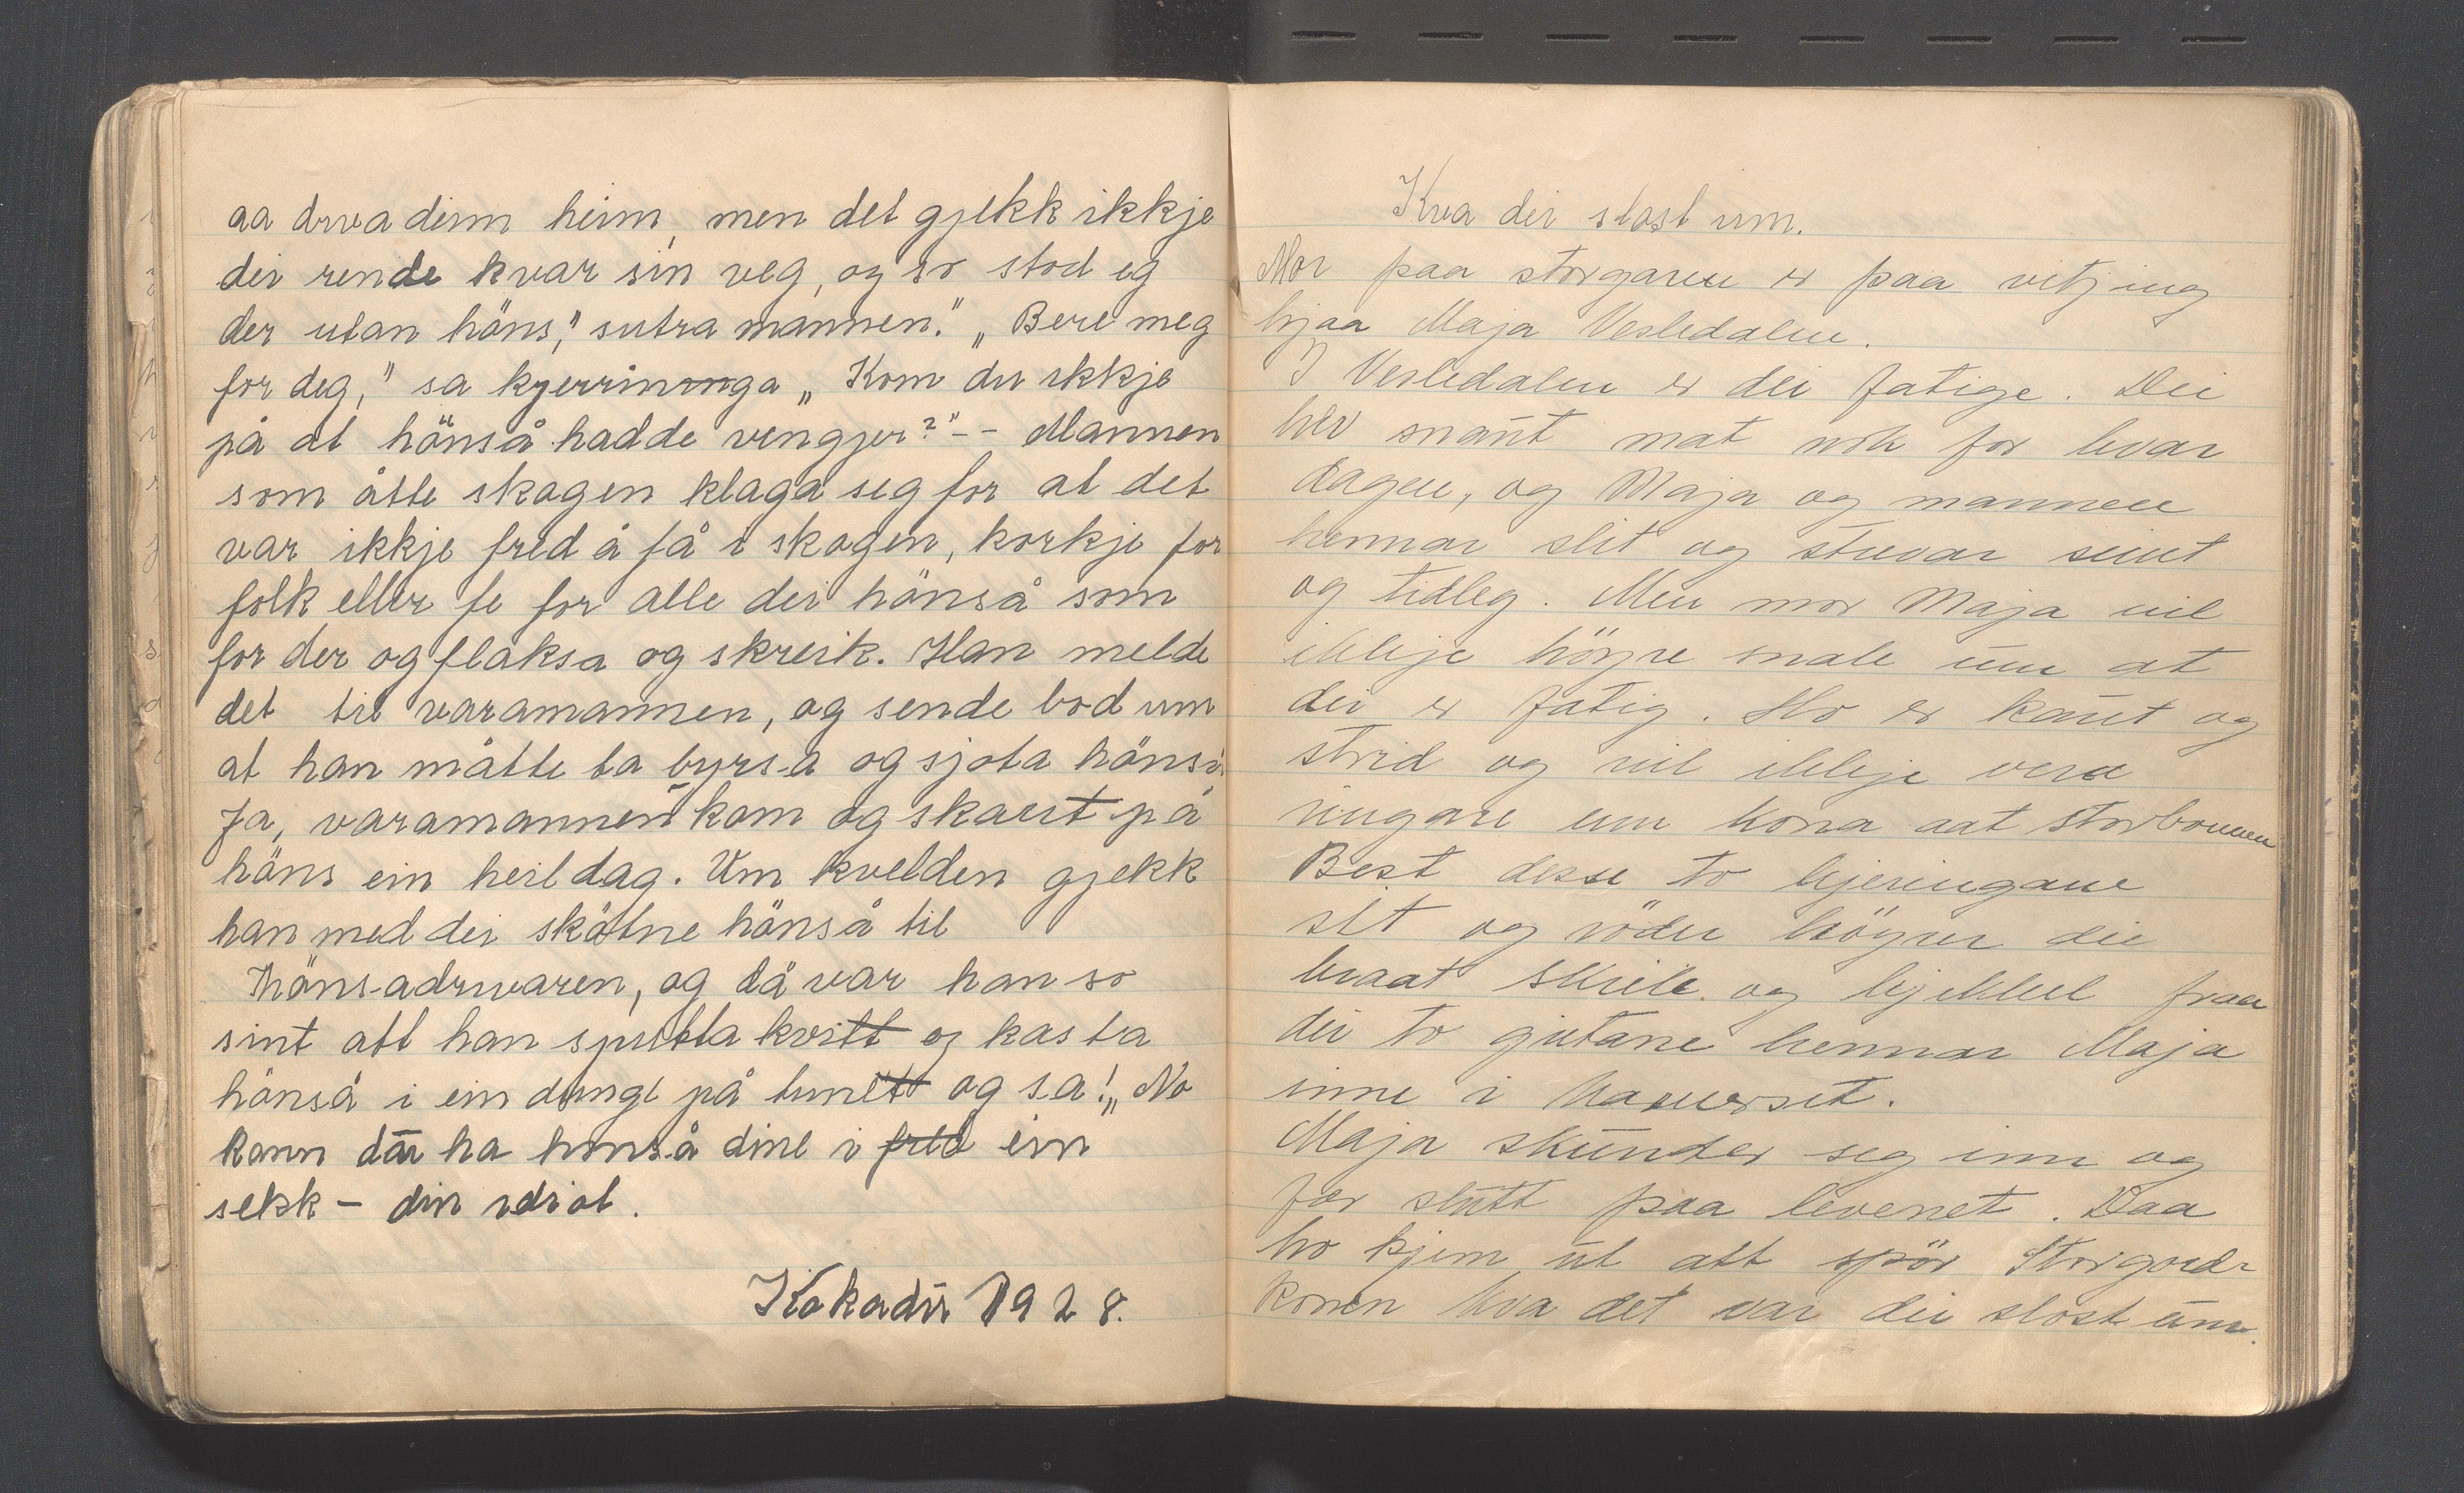 aa driva deim heim, men det gjekk ikkje
dei rende kvar sin veg, og so stod eg
der utan höns," sutra mannen." „Bere meg
for deg," sa kjerringa „Kom du ikkje
på at hönså hadde vengjer?" - - Mannen
som åtte skogen klaga seg for at det
var ikkje fred å få i skogen, korkje for
folk eller fe for alle dei hönså som
for der og flaksa og skreik. Han melde
det til varamannen, og sende bod um
at han måtte ta byrsa og sjota hönså.
Ja, varamannen kom og skaut på
höns ein heil dag. Um kvelden gjekk
han med dei skotne hönså til
hönsadrivaren, og då var han so
sint att han sputta kvitt og kasta
hönså i ein dunge på tunett og sa! „No
kann då ha hönså dine i fred ein
sekk - din idiot.
Kakadū 1928.
Kva dei slost um.
Mor paa storgaren er paa vitjing
hjaa Maja Vesledalen.
I Vesledalen er dei fatige. Dei
hev snaut mat nok for kvar
dagen, og Maja og mannen
hennar slit og strevar seint
og tidleg. Men mor Maja vil
ikkje höyre snakk um at
dei er fatig. Ho er kaut og
strid og vil ikkje vera
ringare enn kona aat storbonden
Best desse to kjeringane
sit og röder höyrer dei
braat skrik og hjekkel fraa
dei to gutane hennar Maja
inne i kamerset.
Maja skunder seg inn og
fær slutt paa levenet. Daa
ho kjem ut att spör Storgard-
konen kva det var dei slost um.